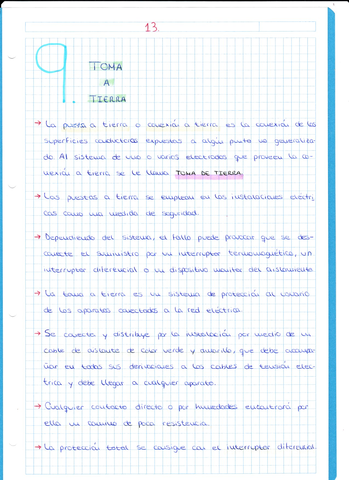 13.
9.
TOMA
A
TIERRA
→ La puesta a tierra o conexión a tierra es la conexión de las
superficies conductoras expuestas a algún punto no
do Al sistema de uno o varios electrodos que proveen la co-
nexión a tierra se le llama TOMA DE TIERRA
→ Las puestas a tierra se emplean en las instalaciones eléctri-
cas como una medida de seguridad.
→ Dependiendo del sistema, el fallo puede provocar que se des-
conecte el suministro por un interruptor termomagnético, un
interruptor diferencial o un dispositivo monitor del aislamiento
→ La toma a tierra es un sistema de protección al usuario
de los aparatos conectados a la red eléctrica.
→ Se conecta y distribuye por la instalación por medio de un
cable de aislante de color verde y amarillo, que debe acompa-
ñar en todas sus derivaciones a los cables de tensión eléc-
trica y debe llegar a cualquier aparato.
→ Cualquier contacto directo o por humedades encontrará por
ello un camino de poca resistencia.
→ La protección total se consigue con el interruptor diferencial.